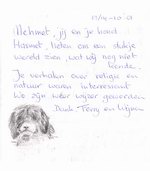 Mehmet, jij en je hond
Hismet, lieten ons een stukje
wereld zien, wat wij nog niet
kenden.
Je verhalen over religie en
natuur waren interressant
We zijn weer wijzer geworden
Bedankt Ferry en Wijnie